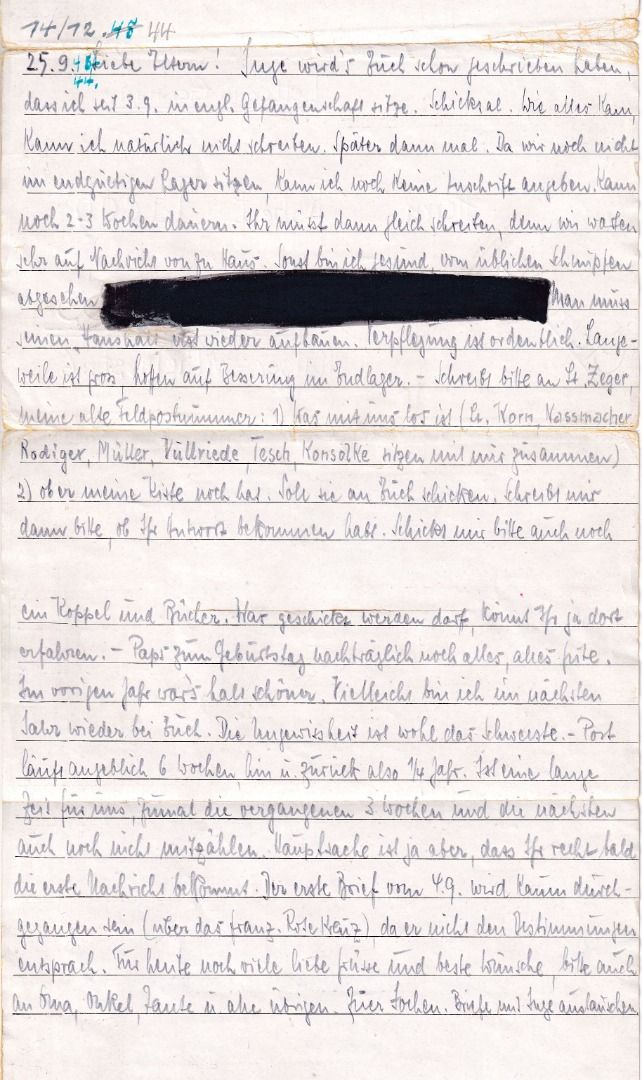 14/12. 45 44
25.9. 45 44. Liebe Eltern! Inge wird's Euch schon geschrieben haben,
dass ich seit 3.9. in engl. Gefangenschaft sitze. Schicksal. Wie alles kam,
kann ich natürlich nicht schreiben. Später dann mal. Da wir noch nicht
im endgültigen Lager sitzen, kann ich noch keine Anschrift angeben. Kann
noch 2-3 Wochen dauern. Ihr müsst dann gleich schreiben, denn wir warten
sehr auf Nachricht von zu Haus. Sonst bin ich gesund, vom üblichen Schnupfen
abgesehen Man muss
seinen "Haushalt" erst wieder aufbauen. Verpflegung ist ordentlich. Lange-
weile ist gross, hoffen auf Besserung im Endlager. - Schreibt bitte an Lt. Zeger,
meine alte Feldpostnummer: 1) Was mit uns los ist (Lt. Korn, Nassmacher,
Rödiger, Müller, Vullriede, Tesch, Konsolke sitzen mit mir zusammen)
2) ob er meine Kiste noch hat. Soll sie an Euch schicken. Schreibt mir
dann bitte, ob Ihr Antwort bekommen habt. Schickt mir bitte auch noch
ein Koppel und Bücher. Was geschickt werden darf, könnt Ihr ja dort
erfahren. - Paps zum Geburtstag nachträglich noch alles, alles Gute.
Im vorigen Jahr war's halt schöner. Vielleicht bin ich im nächsten
Jahr wieder bei Euch. Die Ungewissheit ist wohl das Schwerste. - Post
läuft angeblich 6 Wochen, hin u. zurück also 1/4 Jahr. Ist eine lange
Zeit für uns, zumal die vergangenen 3 Wochen und die nächsten
auch noch nicht mitzählen. Hauptsache ist ja aber, dass Ihr recht bald
die erste Nachricht bekommt. Der erste Brief vom 4.9. wird kaum durch-
gegangen sein (über das franz. Rote Kreuz), da er nicht den Bestimmungen
entsprach. Für heute noch viele liebe Grüsse und beste Wünsche, bitte auch
an Oma, Onkel, Tante u. alle übrigen. Euer Jochen. Briefe mit Inge austauschen